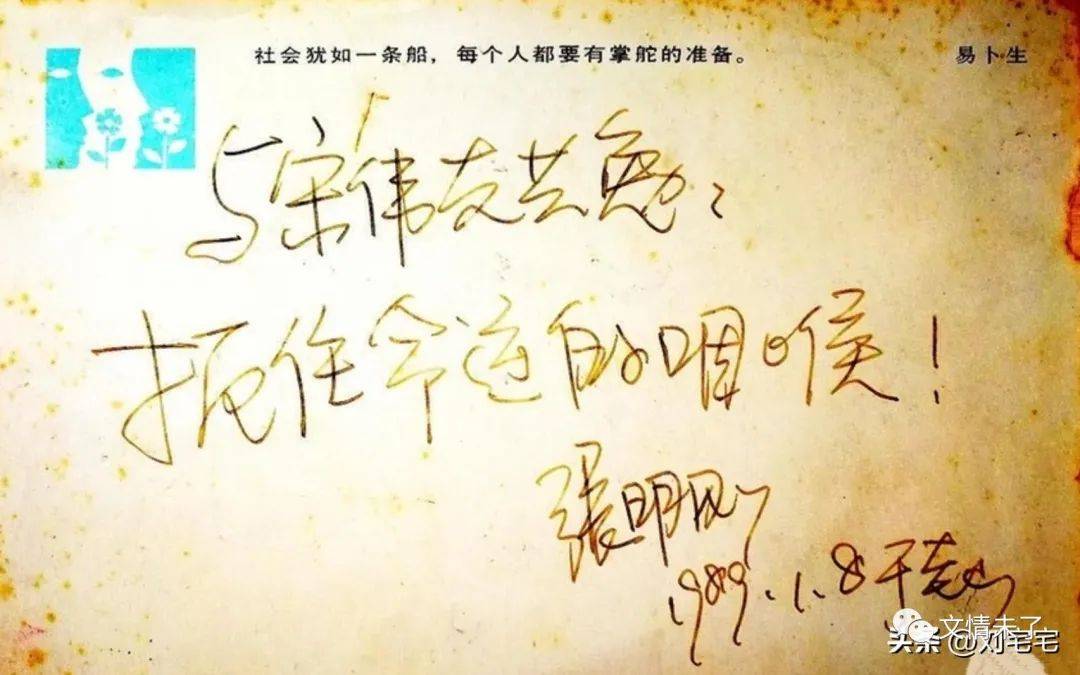 社会犹如一条船，每个人都要有掌舵的准备。 易卜生
与宋伟友共勉：
扼住命运的咽喉！
張明刚
1989.1.8于
文情未了
头条@刘宅宅